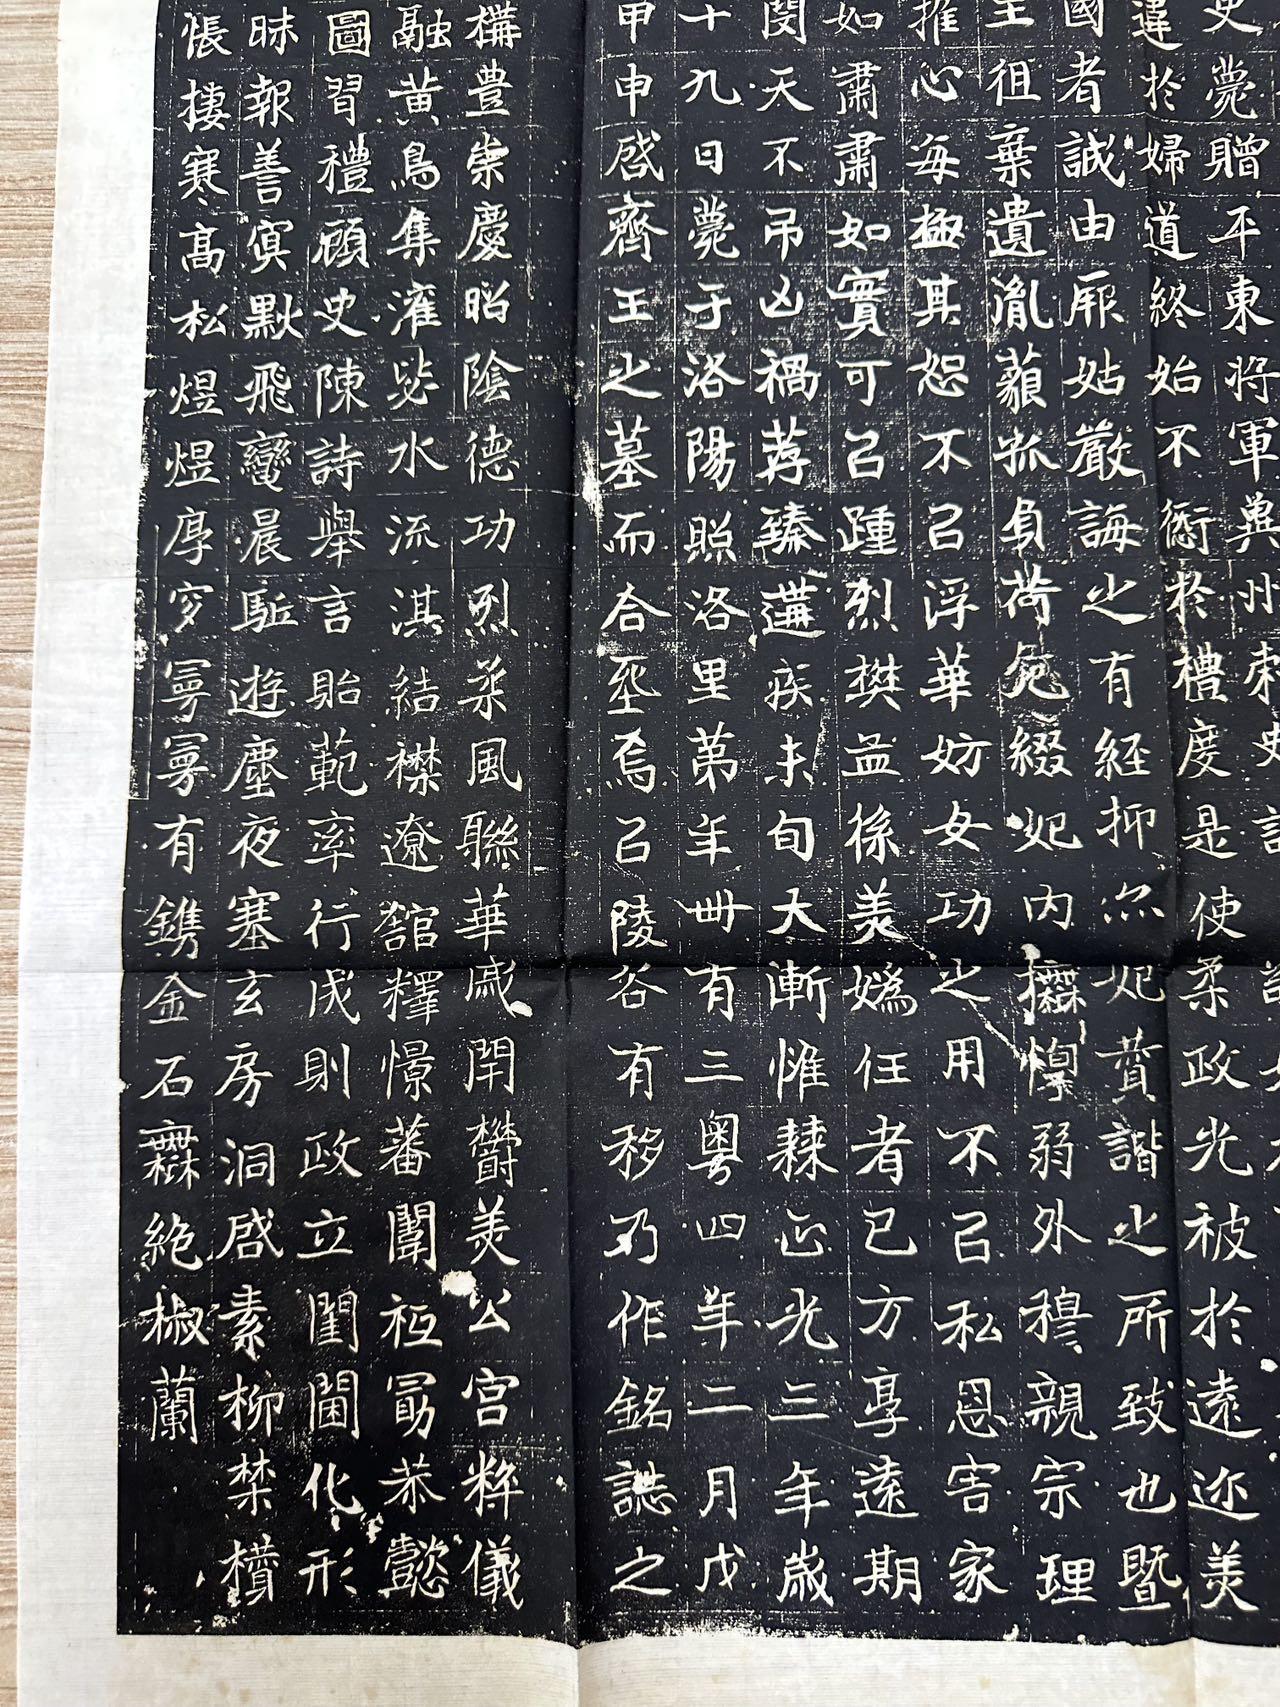 史薨贈平東將軍冀州刺史
違於婦道終始不愆於禮度是使柔政光被於遠迩美
國者誠由厥姑嚴誨之有經抑亦妃贊諧之所致也暨
王徂棄遺胤藐孤負荷危綴妃內撫惸弱外穆親宗理
推心每極其恕不㠯浮華妨女功之用不㠯私恩害家
如肅肅如賓可㠯踵烈樊孟徐美嬀任者已方享遠期
閔天不吊凶禍荐臻遘疾未旬大漸惟棘正光三年歲
十九日薨于洛陽照洛里第年卌有三粵四年二月戊
申申啓齊王之墓而合坙焉㠯陵谷有移乃作銘誌之
構豊崇慶昭陰德功烈柔風聯華戚閈欝美公宮粹儀
融黃鳥集灌毖水流淇結襟遼舘釋憬蕃闈祗勗恭懿
圖習禮顧史陳詩舉言貽範率行成則政立閨閫化形
昧報善冥默飛鸞晨駈遊塵夜塞玄房洞啓素柳槷櫝
悵棲寒高松煜煜厚穸冥冥有鐫金石靡絶椒蘭